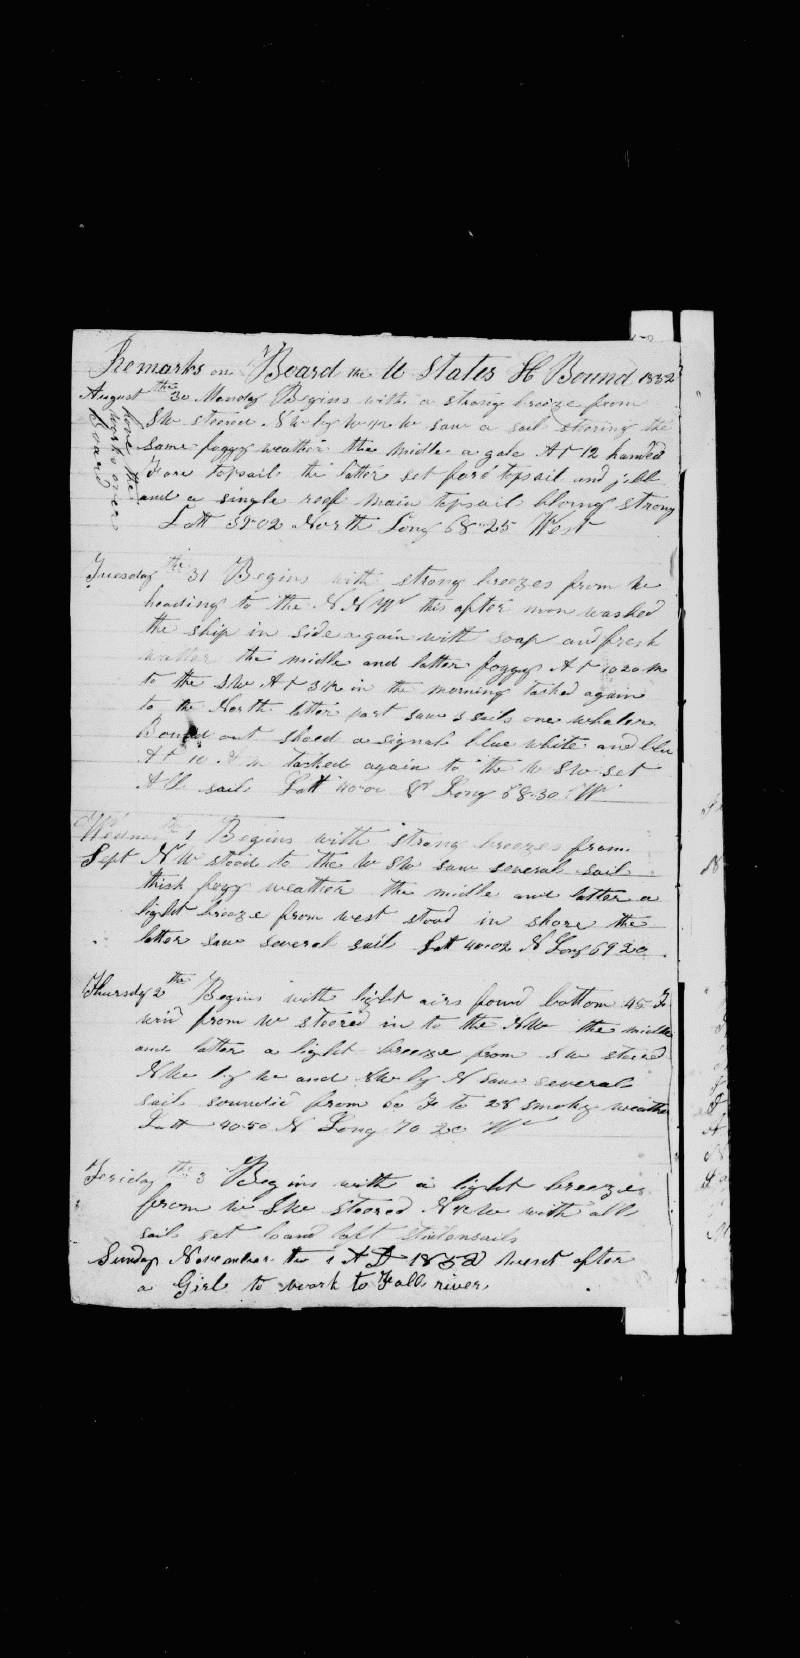 Remarks on Board the U States H Bound 1852
August the 30 Monday Begins with a strong breeze from
SW steered NW by W saw a sail steering the
same foggy weather the midle a gale At 12 handed
Fore topsail the latter set fore topsail and jibb
and a single reef main topsail blowing strong
Latt 39-02 North Long 68-25 West
hove the
works over
board
Tuesday the 31 Begins with strong breezes from W
heading to the NNW this after noon washed
the ship in side again with soap and fresh
watter the midle and latter foggy At
to the SW At 3 in the morning tacked again
to the North latter part saw 3 sails one whaler
Bound out shoed a signal blue white and blu
At 10 A m tacked again to the W SW set
All sail Latt 40-00 Long 68-30 W
Wednes the 1 Begins with strong breezes from
Sept NW stood to the W SW saw several sail
thick fogy weather the midle and latter a
light breeze from west stood in shore the
latter saw several sail Latt 40-02 N Long 69 20
Thursdy 2 the Begins with light airs found bottom 45 F
wind from W steered in to the NW the midle
and latter a light breeze from SW steered
NW by W and NW by N saw several
sail soundid from 60 F to 28 smoky weather
Latt 40-50 N Long 70 20 W
Feriday the 3 Begins with a light breeze
from W SW steered NW with all
sail set loand loft studonsails
Sunday November the 1 A D 1852 went after
a Girl to work to Fall river